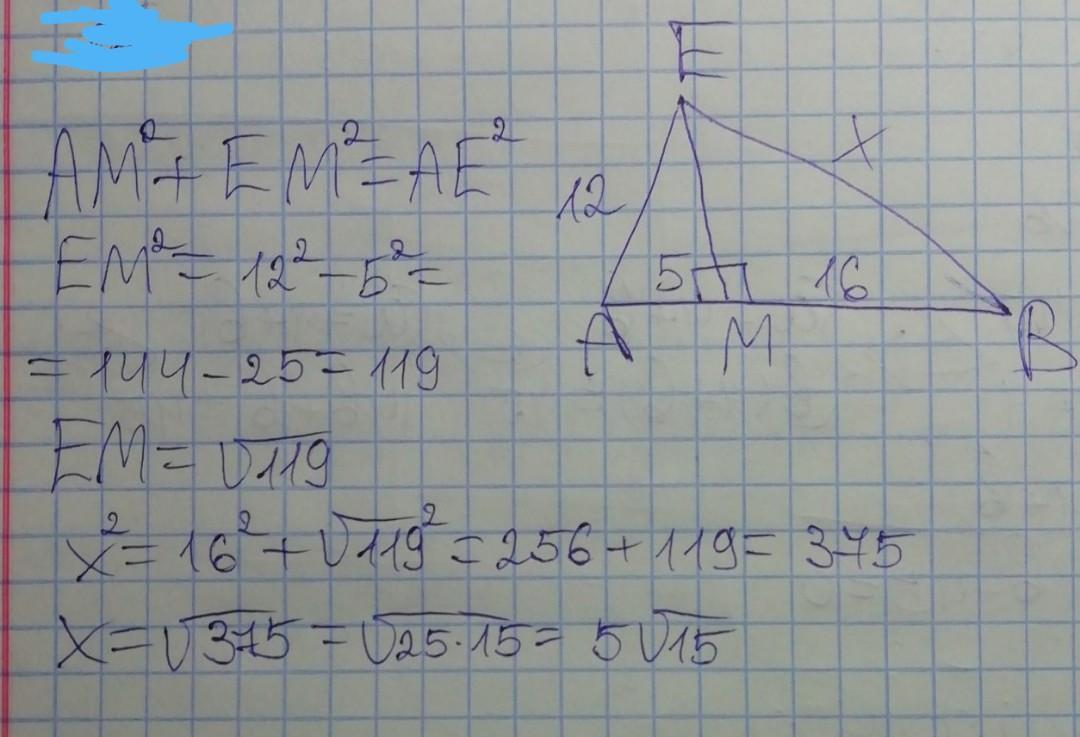 AM²+EM²=AE²
EM²=12²-5²=
=144-25=119
EM=√119
x²=16²+√119²=256+119=375
x=√375=√25·15=5√15
E
x
12
5
16
A
M
B